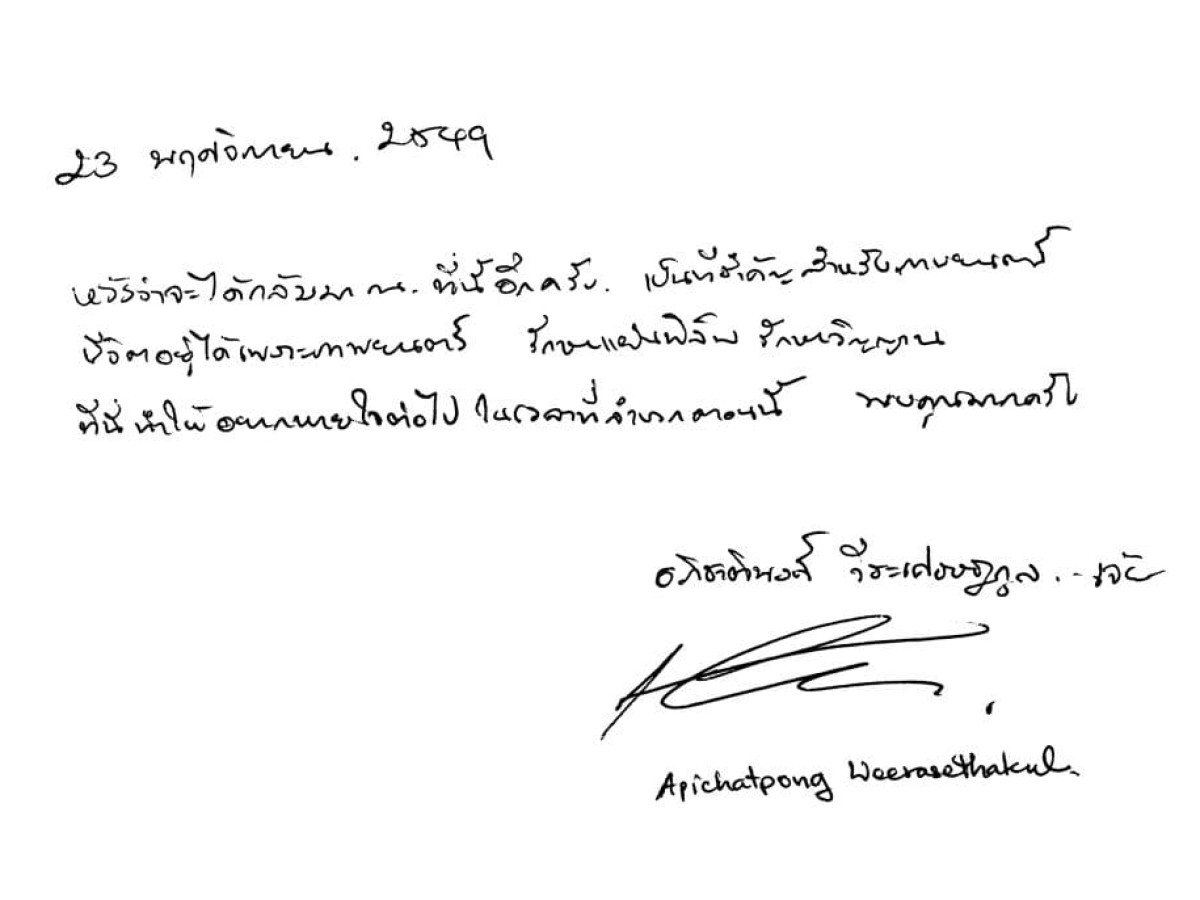 23 พฤศจิกายน. 2549
หวังว่าจะได้กลับมา ณ. ที่นี้อีกครับ. เป็นที่สำคัญสำหรับภาพยนตร์
ชีวิตอยู่ได้เพราะภาพยนตร์ รักษาแผ่นฟิล์ม รักษาวิญญาณ
ที่นี่ทำให้อยากหายใจต่อไป ในเวลาที่ลำบากตอนนี้ ขอบคุณมากครับ
อภิชาติพงศ์ วีระเศรษฐกุล. -- เจ้ย
Apichatpong Weerasethakul.